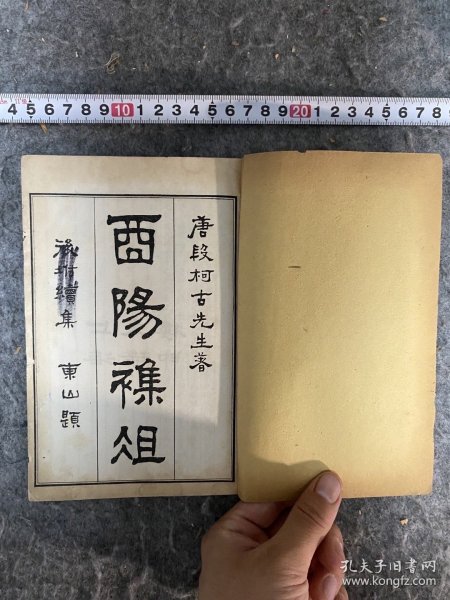 4 5 6 7 8 9 10 1 2 3 4 5 6 7 8 9 20 1 2 3 4 5 6 7 8
唐段柯古先生著
酉陽襍俎
後附續集 東山題
孔夫子旧书网
www.kongfz.com